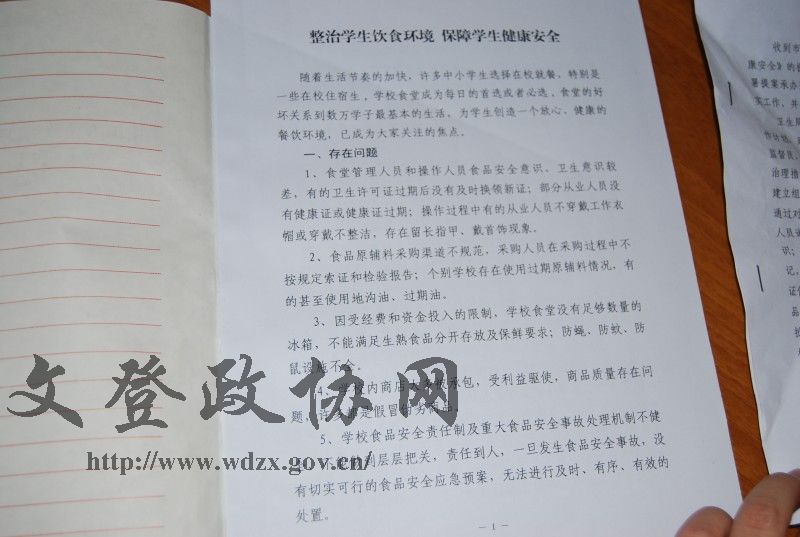 整治学生饮食环境 保障学生健康安全
随着生活节奏的加快，许多中小学生选择在校就餐，特别是
一些在校住宿生，学校食堂成为每日的首选或者必选。食堂的好
坏关系到数万学子最基本的生活，为学生创造一个放心、健康的
餐饮环境，已成为大家关注的焦点。
一、存在问题
1、食堂管理人员和操作人员食品安全意识、卫生意识较
差，有的卫生许可证过期后没有及时换领新证；部分从业人员没
有健康证或健康证过期；操作过程中有的从业人员不穿戴工作衣
帽或穿戴不整洁，存在留长指甲、戴首饰现象。
2、食品原辅料采购渠道不规范，采购人员在采购过程中不
按规定索证和检验报告；个别学校存在使用过期原辅料情况，有
的甚至使用地沟油、过期油。
3、因受经费和资金投入的限制，学校食堂没有足够数量的
冰箱，不能满足生熟食品分开存放及保鲜要求；防蝇、防蚊、防
鼠设施不全。
4、学校内商店大多被承包，受利益驱使，商品质量存在问
题，许多都是假冒伪劣商品。
5、学校食品安全责任制及重大食品安全事故处理机制不健
到层层把关，责任到人，一旦发生食品安全事故，没
有切实可行的食品安全应急预案，无法进行及时、有序、有效的
处置。
— 1 —
文登政协网
http://www.wdzx.gov.cn/
收到市
康安全》的
署提案承办
实工作，并
卫生局
监督员、
治理措
建立组
通过对
人员
识；
记，
证
品